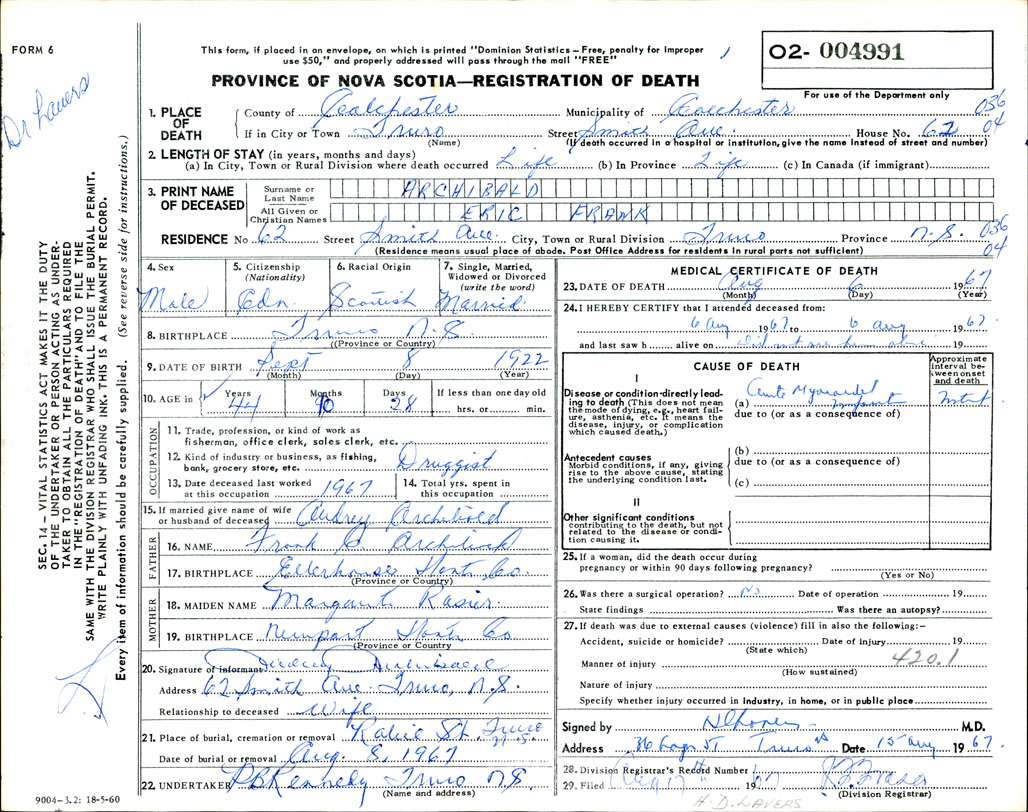 FORM 6
This form, if placed in an envelope, on which is printed "Dominion Statistics – Free, penalty for improper
use $50," and properly addressed will pass through the mail "FREE"
PROVINCE OF NOVA SCOTIA—REGISTRATION OF DEATH
O2- 004991
For use of the Department only
Dr Lavers
SEC. 14 – VITAL STATISTICS ACT MAKES IT THE DUTY
OF THE UNDERTAKER OR PERSON ACTING AS UNDER-
TAKER TO OBTAIN ALL THE PARTICULARS REQUIRED
IN THE "REGISTRATION OF DEATH" AND TO FILE THE
SAME WITH THE DIVISION REGISTRAR WHO SHALL ISSUE THE BURIAL PERMIT.
WRITE PLAINLY WITH UNFADING INK. THIS IS A PERMANENT RECORD.
Every item of information should be carefully supplied. (See reverse side for instructions.)
1. PLACE OF DEATH
County of Colchester Municipality of Colchester 036
If in City or Town Truro Street Smith Ave. House No. 62 04
(Name) (If death occurred in a hospital or institution, give the name instead of street and number)
2. LENGTH OF STAY (in years, months and days)
(a) In City, Town or Rural Division where death occurred Life (b) In Province Life (c) In Canada (if immigrant)
3. PRINT NAME OF DECEASED
Surname or Last Name ARCHIBALD
All Given or Christian Names ERIC FRANK
RESIDENCE No 62 Street Smith Ave. City, Town or Rural Division Truro Province N.S. 036
04
(Residence means usual place of abode. Post Office Address for residents in rural parts not sufficient)
4. Sex
Male
5. Citizenship (Nationality)
Cdn.
6. Racial Origin
Scottish
7. Single, Married, Widowed or Divorced (write the word)
Married
8. BIRTHPLACE Truro N.S
(Province or Country)
9. DATE OF BIRTH Sept 8 1922
(Month) (Day) (Year)
10. AGE in
Years 44
Months 10
Days 28
If less than one day old
hrs. or min.
OCCUPATION
11. Trade, profession, or kind of work as
fisherman, office clerk, sales clerk, etc.
12. Kind of industry or business, as fishing,
bank, grocery store, etc. Druggist
13. Date deceased last worked
at this occupation 1967
14. Total yrs. spent in
this occupation
15. If married give name of wife
or husband of deceased Audrey Archibald
FATHER
16. NAME Frank Archibald
17. BIRTHPLACE Ellerhouse Hants Co.
(Province or Country)
MOTHER
18. MAIDEN NAME Margaret
19. BIRTHPLACE Newport Hants Co
(Province or Country
20. Signature of informant Audrey Archibald
Address 62 Smith Ave. Truro, N.S.
Relationship to deceased Wife
21. Place of burial, cremation or removal St. Truro N.S.
Date of burial or removal Aug. 8, 1967
22. UNDERTAKER P B Kennedy Truro N.S.
(Name and address)
9004–3.2: 18-5-60
MEDICAL CERTIFICATE OF DEATH
23. DATE OF DEATH Aug 6 1967
(Month) (Day) (Year)
24. I HEREBY CERTIFY that I attended deceased from:
6 Aug 1967 to 6 Aug 1967
and last saw h alive on did not see him alive 19
CAUSE OF DEATH
Approximate interval be-
tween onset
and death
I
Disease or condition directly lead-
ing to death (This does not mean
the mode of dying, e.g., heart fail-
ure, asthenia, etc. It means the
disease, injury, or complication
which caused death.)
(a) Acute Myocardial Infarct
due to (or as a consequence of)
Antecedent causes
Morbid conditions, if any, giving
rise to the above cause, stating
the underlying condition last.
(b)
due to (or as a consequence of)
(c)
II
Other significant conditions
contributing to the death, but not
related to the disease or condi-
tion causing it.
25. If a woman, did the death occur during
pregnancy or within 90 days following pregnancy?
(Yes or No)
26. Was there a surgical operation? No Date of operation 19
State findings Was there an autopsy?
27. If death was due to external causes (violence) fill in also the following:–
Accident, suicide or homicide? Date of injury 19
(State which)
420.1
Manner of injury
(How sustained)
Nature of injury
Specify whether injury occurred in industry, in home, or in public place
Signed by M.D.
Address Truro NS Date 15 Aug 1967
28. Division Registrar's Record Number
29. Filed Aug 17 1967 Fraser
(Division Registrar)
H.D. LAVERS